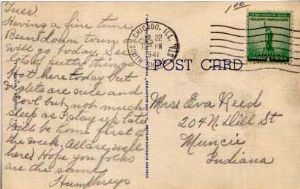 Tues.
Having a fine time
Been down town &
will go today. See
lots pretty things
hot here today but
nights are nice and
cool but not much
sleep as I play up late
will be home first of
the week. All are well
here. Hope you folks
are the same
Humphreys
CHICAGO, ILL.
22
PM
1941
POST CARD
Mrs Eva Reed
204 N Dill St
Muncie
Indiana